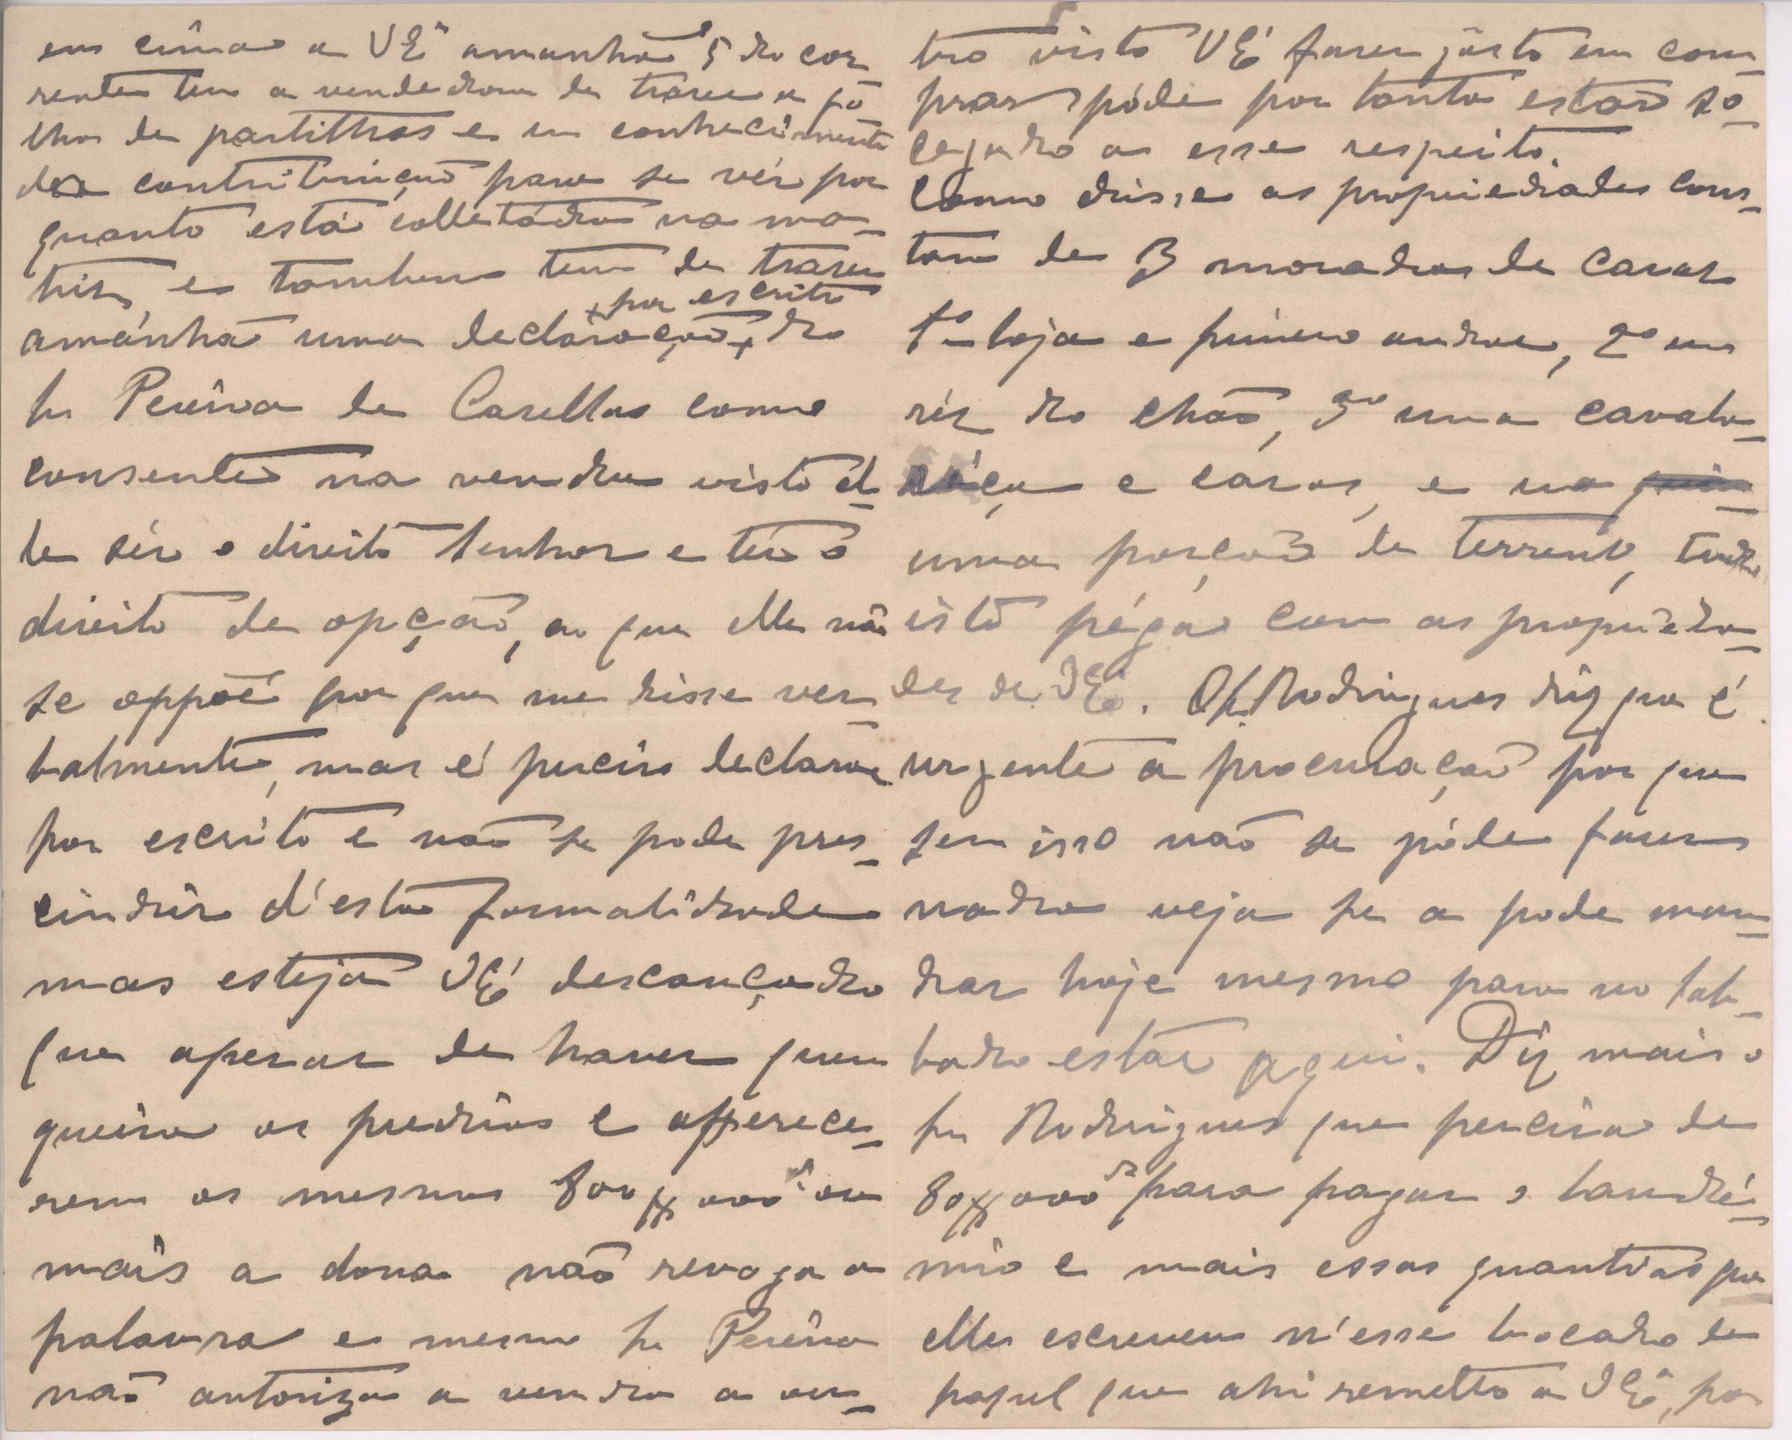 em cima a VEª amanhã 5 do cor-
rente tem a vendedora de trazer a fo-
lha de partilhas e um conhecimento
da contribuição para se vêr por
quanto está collectádo na ma-
triz, e tambem tem de trazer
amánhã uma declaração + do
+ por escrito
Sr Pereira de Casellas como
consente na venda visto el-
le sêr o direito senhor e têr o
direito de opção, ao que elle não
se oppoé por que me disse ver-
balmente, mas é preciso declarar
por escrito e não se pode pres-
cindir d'esta formalidade
mas esteja VEª descançado
que apezar de haver quem
queira os predios e offerece-
rem os mesmos 800$000 rs ou
mais a dona não revoga a
palavra e mesmo Sr Pereira
não autoriza a venda a ou-
tro visto VEª fazer gosto em com-
prar, póde por tanto estar so-
cegado a esse respeito.
Como disse as propriedades cons-
tam de 3 moradas de casas
1º loja e primeiro andar, 2º um
réz do chão, 3º uma cavala-
riça e cazas, e
uma porção de terreno, tudo
isto péga com as proprieda-
des de VEª. O Sr. Rodrigues diz que é
urgente a procuração por que
sem isso não se póde fazer
nada veja se a pode man-
dar hoje mesmo para no sab-
bado estar aqui. Diz mais o
Sr Rodrigues que precisa de
80$000 rs para pagar o laudé-
mio e mais essas quantias que
elle escreveu n'esse bocado de
papel que ahi remetto a VEª, por